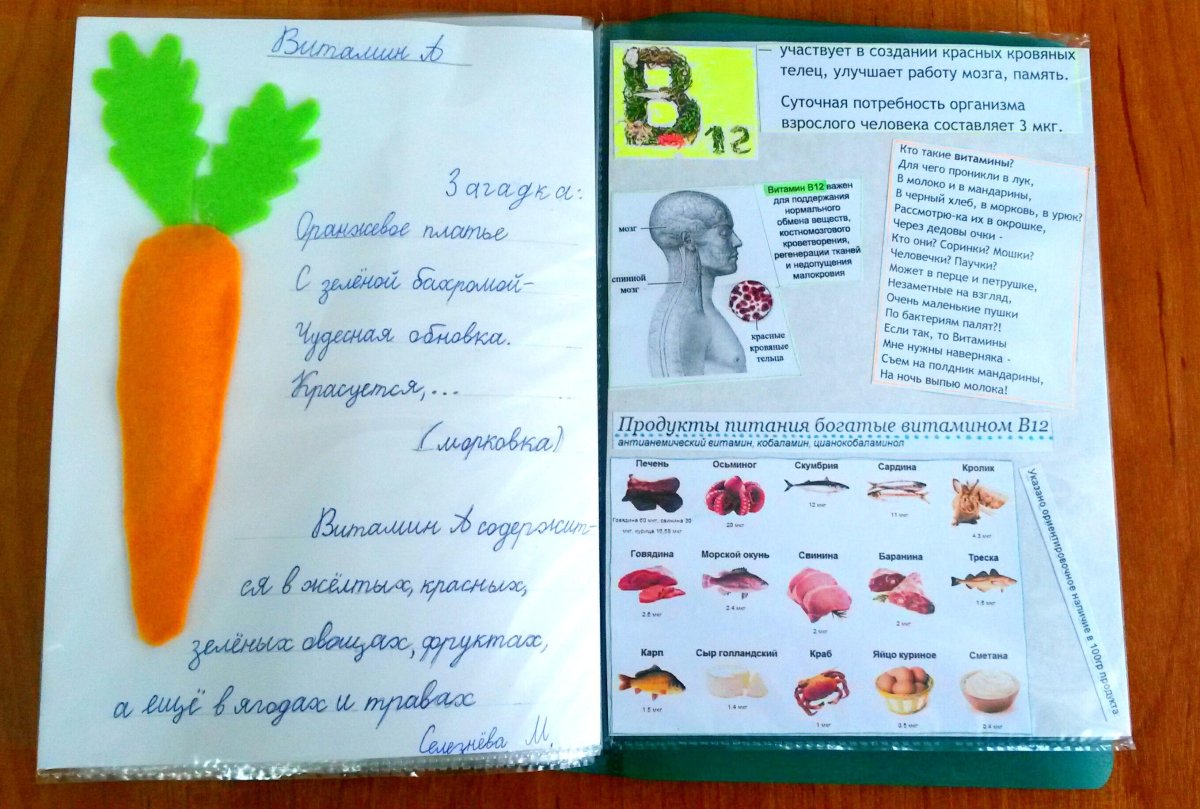 Витамин А
Загадка:
Оранжевое платье
С зелёной бахромой-
Чудесная обновка.
Красуется,...
(морковка)
Витамин А содержит-
ся в жёлтых, красных,
зелёных овощах, фруктах,
а ещё в ягодах и травах
Селезнёва М.
B 12
участвует в создании красных кровяных
телец, улучшает работу мозга, память.
Суточная потребность организма
взрослого человека составляет 3 мкг.
мозг
спинной
мозг
красные
кровяные
тельца
Витамин В12 важен
для поддержания
нормального
обмена веществ,
костномозгового
кроветворения,
регенерации тканей
и недопущения
малокровия
Кто такие витамины?
Для чего проникли в лук,
В молоко и в мандарины,
В черный хлеб, в морковь, в урюк?
Рассмотрю-ка их в окрошке,
Через дедовы очки -
Кто они? Соринки? Мошки?
Человечки? Паучки?
Может в перце и петрушке,
Незаметные на взгляд,
Очень маленькие пушки
По бактериям палят?!
Если так, то Витамины
Мне нужны наверняка -
Съем на полдник мандарины,
На ночь выпью молока!
Продукты питания богатые витамином В12
антианемический витамин, кобаламин, цианокобаламинол
Печень Осьминог Скумбрия Сардина Кролик
Говядина 60 мкг, свинина 30
мкг, курица 16,58 мкг
20 мкг 12 мкг 11 мкг 4.3 мкг
Говядина Морской окунь Свинина Баранина Треска
2.6 мкг 2.4 мкг 2 мкг 2 мкг 1.6 мкг
Карп Сыр голландский Краб Яйцо куриное Сметана
1.5 мкг 1.4 мкг 1 мкг 0.5 мкг 0.4 мкг
Указано ориентировочное наличие в 100гр продукта